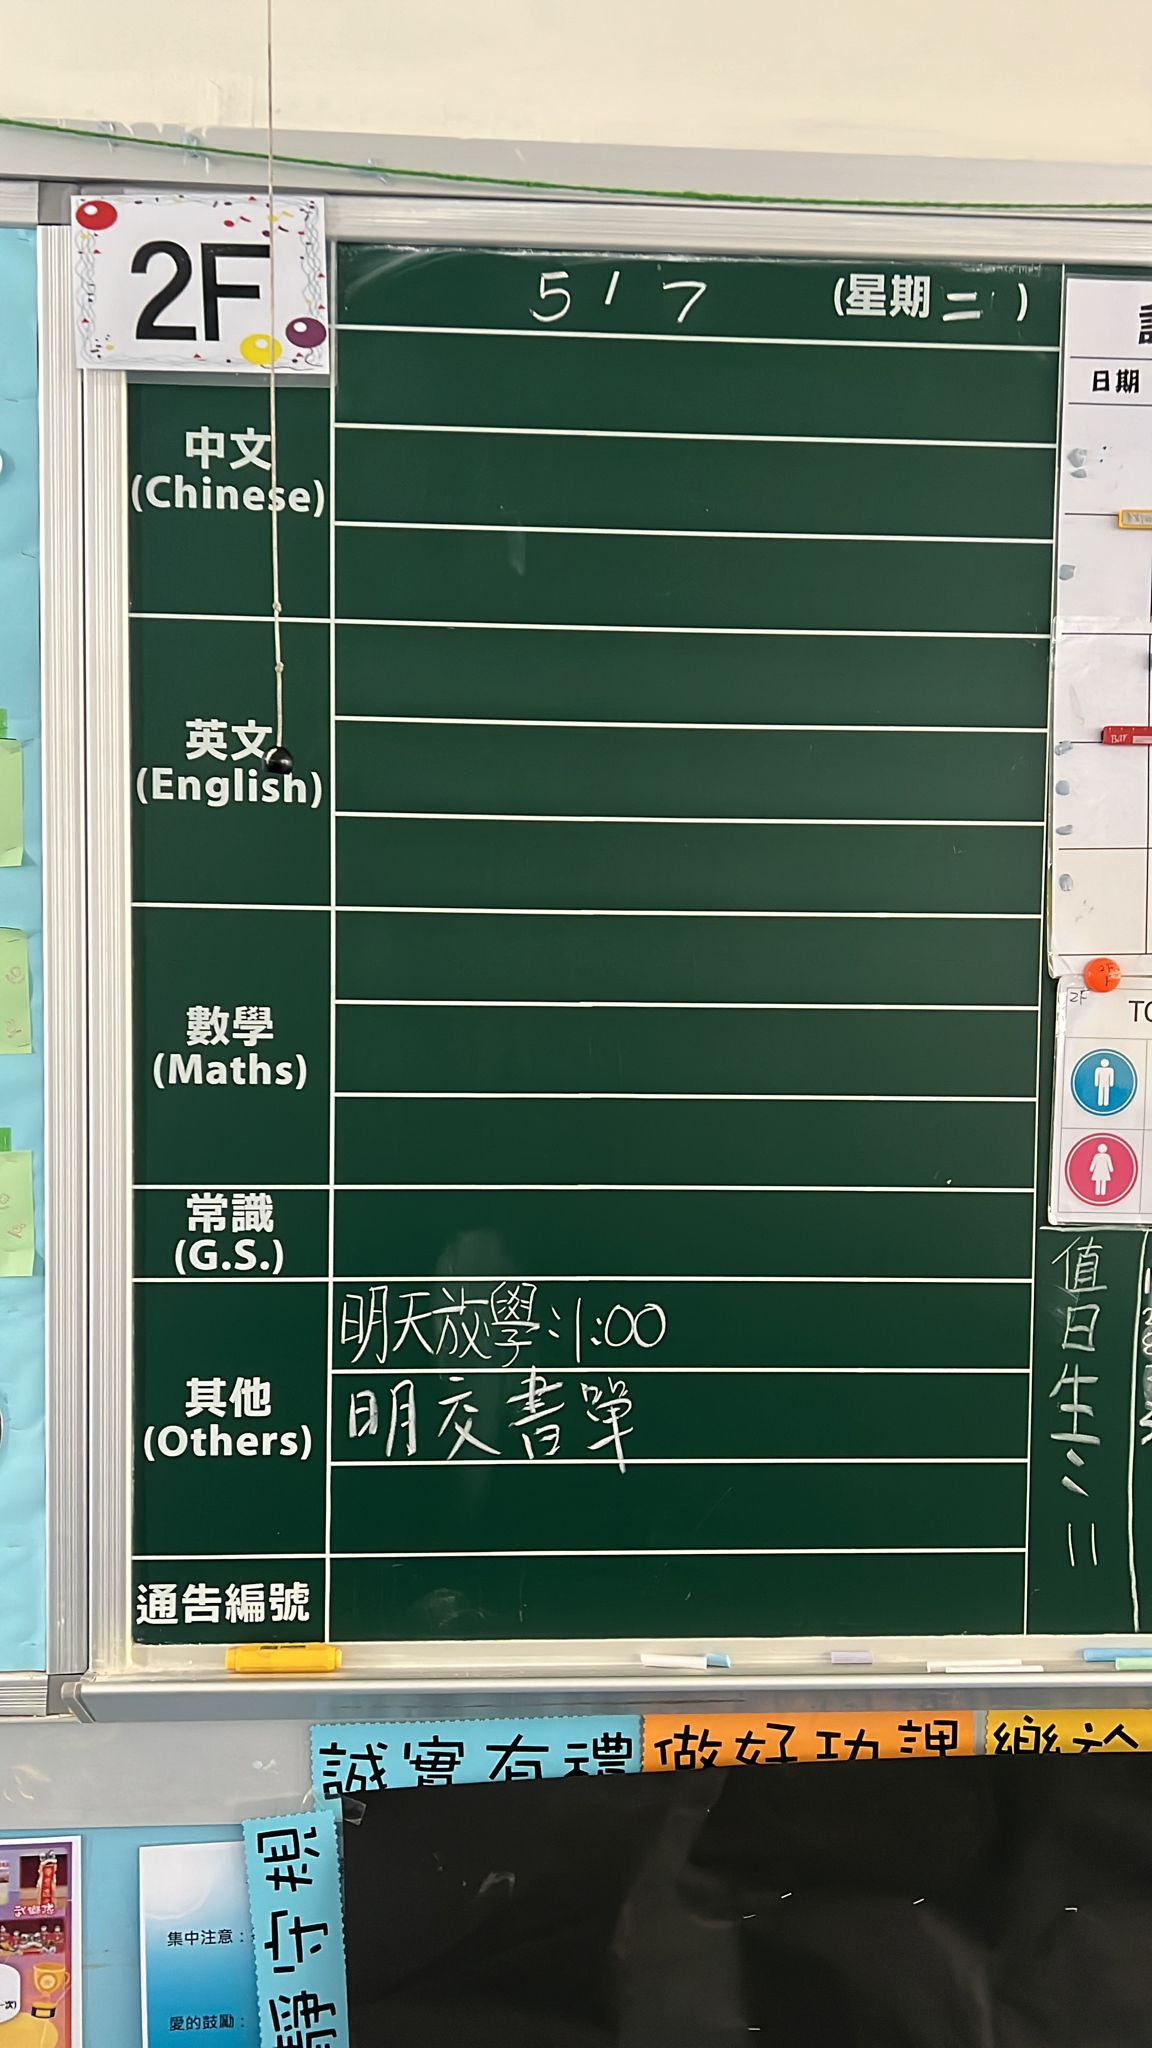 2F
5 / 7 (星期二)
日期
中文
(Chinese)
英文
(English)
數學
(Maths)
常識
(G.S.)
其他
(Others)
明天放學:1:00
明交書單
通告編號
2F
值日生:
誠實有禮
做好功課
樂於
靜守規
集中注意:
愛的鼓勵: